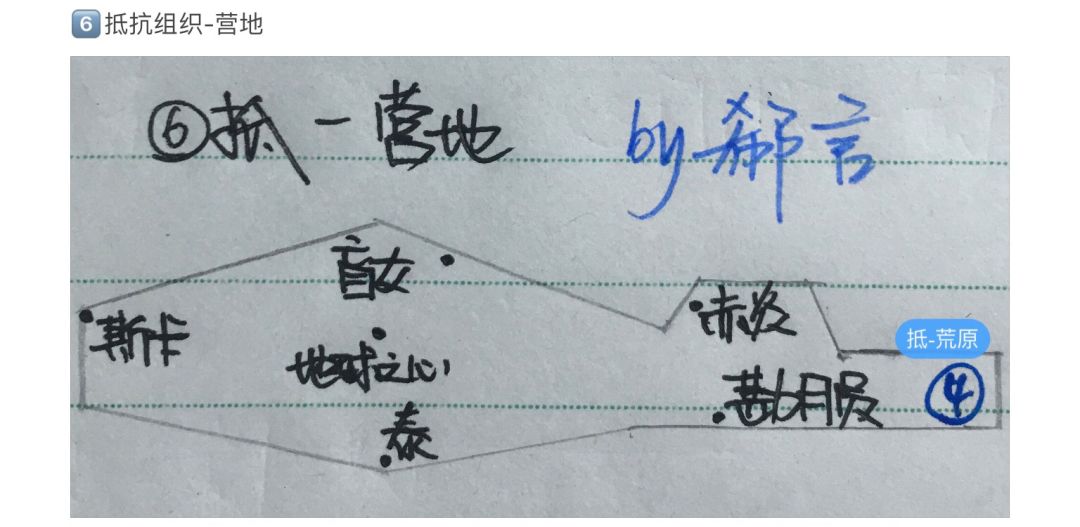 6 抵抗组织-营地
⑥抵-营地
by 郗言
盲女
斯卡
赤炎
抵-荒原
地球之心
④
泰